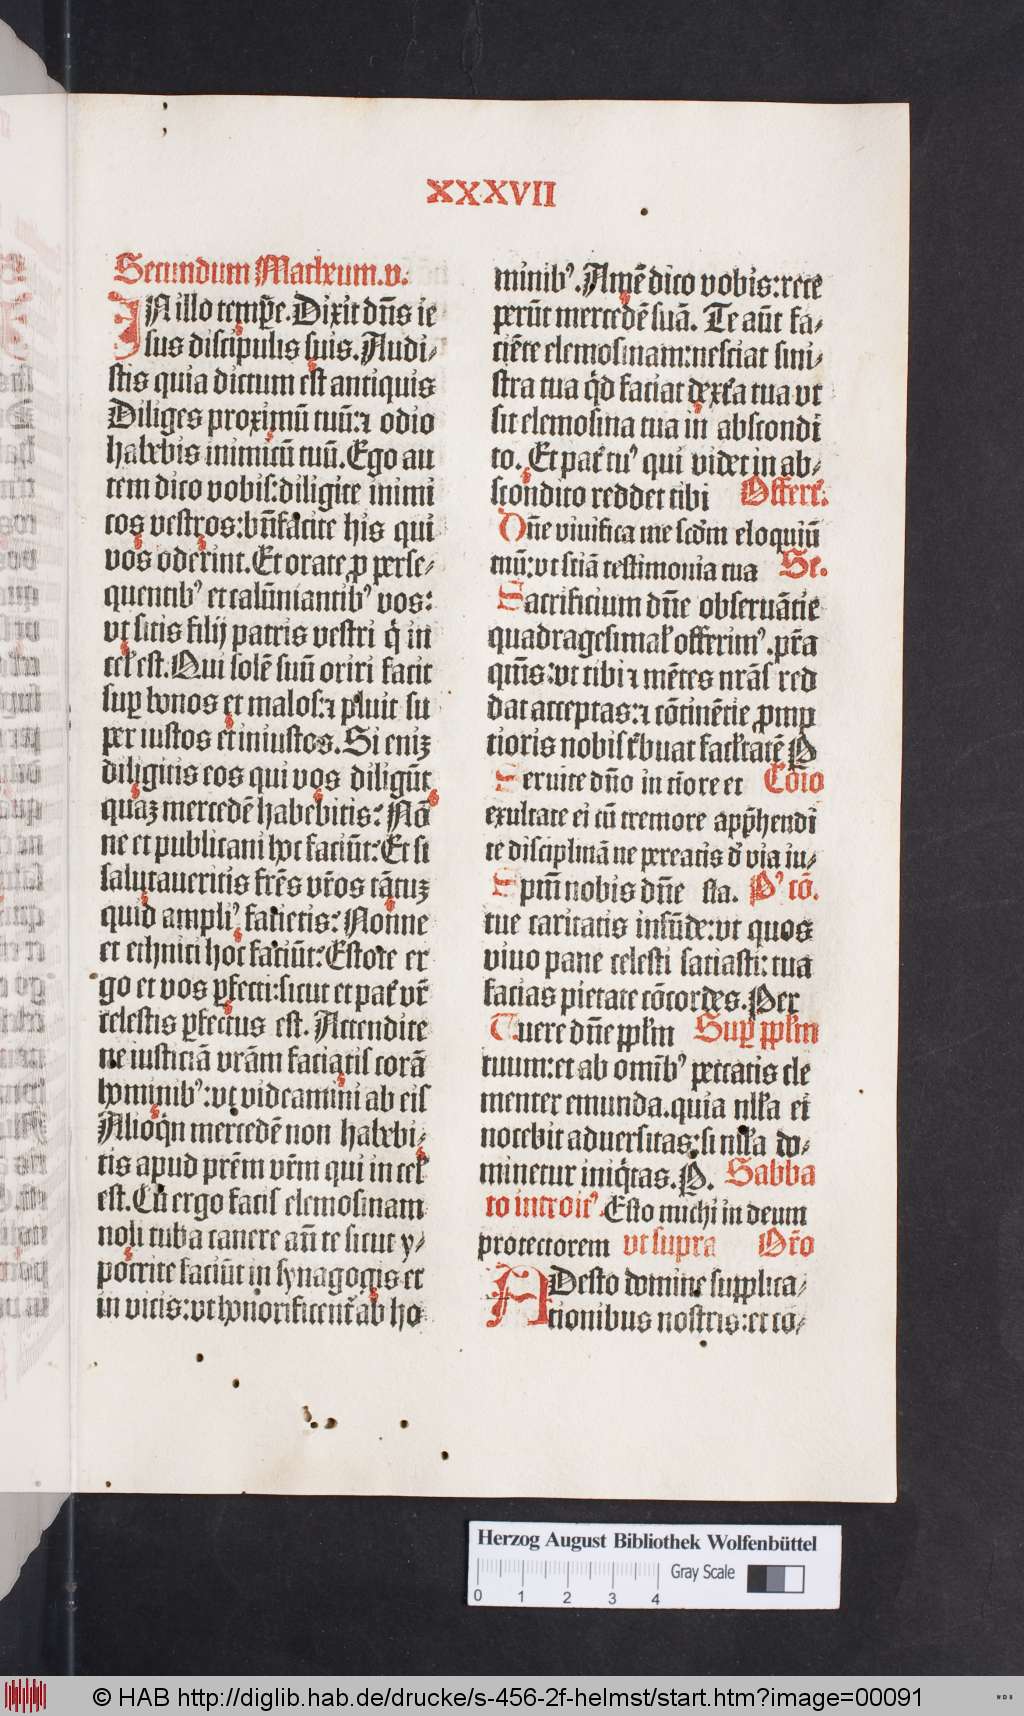 XXXVII
Secundum Matheum.v.
IN illo temꝑe. Dixit dn̄s ie
sus discipulis suis. Audi⸗
stis quia dictum est antiquis
Diliges proximū tuū: ⁊ odio
habebis inimicū tuū. Ego au
tem dico vobis: diligite inimi
cos vestros: bn̄facite his qui
vos oderint. Et orate ꝓ perse⸗
quentibꝰ et calūniantibꝰ vos:
vt sitis filij patris vestri q̇ in
cel̓ est. Qui solē suū oriri facit
suꝑ bonos et malos: ⁊ pluit su
per iustos et iniustos. Si enīꝫ
diligitis eos qui vos diligūt
quaꝫ mercedē habebitis: Nō
ne et publicani hoc faciūt: Et si
salutaueritis frēs vr̄os tātuꝫ
quid ampliꝰ facietis: Nonne
et ethnici hoc faciūt: Estote er
go et vos ꝑfecti: sicut et pat̓ vr̄
celestis ꝑfectus est. Attendite
ne iusticiā vrām faciatis corā
hominibꝰ: vt videamini ab eis
Alioq̄n mercedē non habebi⸗
tis apud prēm vr̄m qui in cel̓
est. Cū ergo facis elemosinam
noli tuba canere an̄ te sicut y⸗
pocrite faciūt in synagogis et
in vicis: vt honorificent̄ ab ho
minibꝰ. Amē dico vobis: rece
perūt mercedē suā. Te aūt fa⸗
ciēte elemosinam: nesciat sini⸗
stra tua q̇d faciat dext̓a tua vt
sit elemosina tua in abscondi
to. Et pat̓ tuꝰ qui videt in ab⸗
scondito reddet tibi Offert̓.
Dn̄e viuifica me scd̄m eloquiū
tuū: vt sciā testimonia tua Se.
Sacrificium dn̄e obseruātie
quadragesimal̓ offerimꝰ. pr̄a
qm̄s: vt tibi ⁊ mētes nrās red
dat acceptas: ⁊ cōtinētie ꝓmꝑ
tioris nobis t̓buat facl̓tatē P̲
Seruite dn̄o in tiore et Cōio
exultate ei cū tremore apꝑhendi
te disciplinā ne pereatis d̓ via iu⸗
Spm̄ nobis dn̄e sta. Pꝰ cō.
tue caritatis infūde: vt quos
viuo pane celesti saciasti: tua
facias pietate cōcordes. Per
Tuere dn̄e ppl̓m Suꝑ ppl̓m
tuum: et ab omībꝰ peccatis cle
menter emunda. quia nl̓la ei
nocebit aduersitas: si nl̓la do⸗
minetur iniq̇tas. P. Sabba
to introitꝰ. Esto michi in deum
protectorem vt supra Or̄o
ADesto domine supplica⸗
tionibus nostris: et co⸗
Herzog August Bibliothek Wolfenbüttel
Gray Scale
0 1 2 3 4
© HAB http://diglib.hab.de/drucke/s-456-2f-helmst/start.htm?image=00091